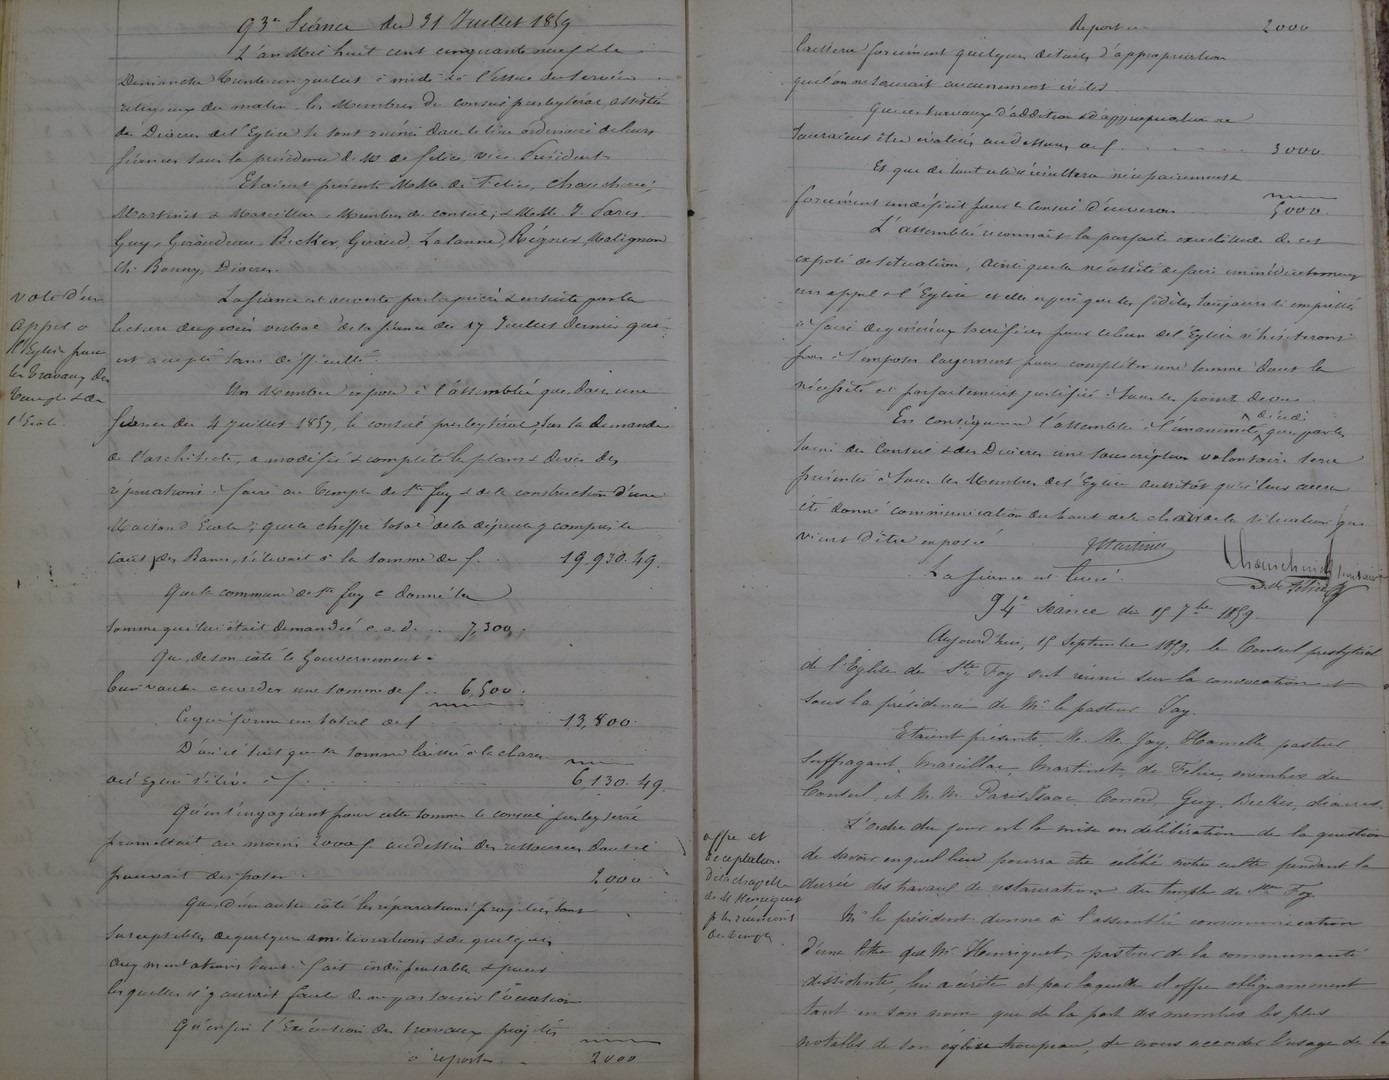 93e Séance du 31 Juillet 1859
L'an Mil huit cent cinquante neuf & le
Dimanche trente un juillet à midi & à l'issue du service
religieux du matin les Membres du conseil presbytéral, assistés
des Diacres de l'Eglise se sont réunis dans le lieu ordinaire de leurs
séances sous la présidence de Mr de Félice, vice-Président
Etaient présents MMrs de Félice, Chaucherie,
Martinet & Marcillac, Membres du conseil, & MMrs J. Paris
Guy, Giraudeau, Becker, Giraud, Lalanne, Régnier, Matignon
Ch. Bonny, Diacres.
La séance est ouverte par la prière & ensuite par la
lecture du procès verbal de la séance du 17 Juillet dernier qui
est accepté sans difficulté.
Un Membre expose à l'assemblée que, dans une
séance du 4 Juillet 1857, le conseil presbytéral, sur la demande
de l'architecte, a modifié & complété le plan & devis des
réparations à faire au Temple de Ste foy & de la construction d'une
Maison d'Ecole; que le chiffre total de la dépense y compris le
coût des Bancs, s'élevait à la somme de f. 19,930.49.
Que la commune de Ste foy a donné la
somme qui lui était demandée c.a.d. 7,300.
Que, de son côté le Gouvernement
bien voulu accorder une somme de f. 6,500.
Ce qui forme un total de f 13,800.
D'où il suit que la somme laissée à la charge
de l'Eglise s'élève à f. 6,130.49.
Qu'en s'engageant pour cette somme le conseil presbytéral
promettait au moins 2000 f au dessus des ressources dont il
pouvait disposer. 2000
Que, d'un autre côté les réparations projetées sont
susceptibles de quelques améliorations & de quelques
augmentations tout à fait indispensables & pour
lesquelles il y aurait faute de ne pas saisir l'occasion
Qu'enfin l'Exécution des travaux projetés
à reporter 2000
vote d'un
appel à
l'Eglise pour
les travaux du
Temple & de
l'Ecole.
Report 2000
laissera forcément quelques détails d'appropriation
qu'on ne saurait aucunement éviter
Que ces travaux d'addition & d'appropriation ne
sauraient être évalués au dessous de f. 3000.
Et que de tout cela il résultera nécessairement
forcément un déficit pour le conseil d'environ 5000.
L'assemblée reconnaît la parfaite exactitude de cet
exposé de situation, ainsi que la nécessité de faire immédiatement
un appel à l'Eglise et elle espère que les fidèles toujours si empressés
à faire de généreux sacrifices pour le bien de l'Eglise n'hésiteront
pas à s'imposer largement pour compléter une somme dont la
nécessité est parfaitement justifiée à tous les points de vue.
décide
En conséquence l'assemblée à l'unanimité que par les
soins du Conseil & des Diacres une souscription volontaire sera
présentée à tous les Membres de l'Eglise aussitôt qu'il leur aura
été donné communication du haut de la chaire de la situation qui
vient d'être exposée
La séance est levée.
Martinet
Chaucherie
D. de Félice
94e Séance du 15 7bre 1859.
Aujourd'hui, 15 Septembre 1859, le Conseil presbytéral
de l'Eglise de Ste Foy s'est réuni sur la convocation et
sous la présidence de Mr le pasteur Jay.
Etaient présents M. Mrs Jay, Hamelle pasteur
suffragant, Marcillac, Martinet, de Félice, membres du
Conseil, et M. M. Paris Isaac, Conord, Guy, Becker, diacres.
L'ordre du jour est la mise en délibération de la question
de savoir en quel lieu pourra être célébré notre culte pendant la
durée des travaux de restauration du temple de Ste Foy.
Mr le président donne à l'assemblée communication
d'une lettre que Mr Henriquet, pasteur de la communauté
dissidente, lui a écrite et par laquelle il offre obligeamment
tant en son nom que de la part des membres les plus
notables de son église troupeau, de nous accorder l'usage de la
offre et
acceptation
de la chapelle
de Mr Henriquet
pr les réunions
du temple